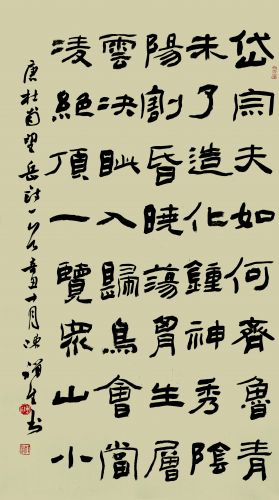 岱宗夫如何齊魯青
未了造化鍾神秀陰
陽割昏曉蕩胷生層
雲決眦入歸鳥會當
凌絕頂一覽眾山小
唐杜甫望岳詩一首辛丑十月陳生书